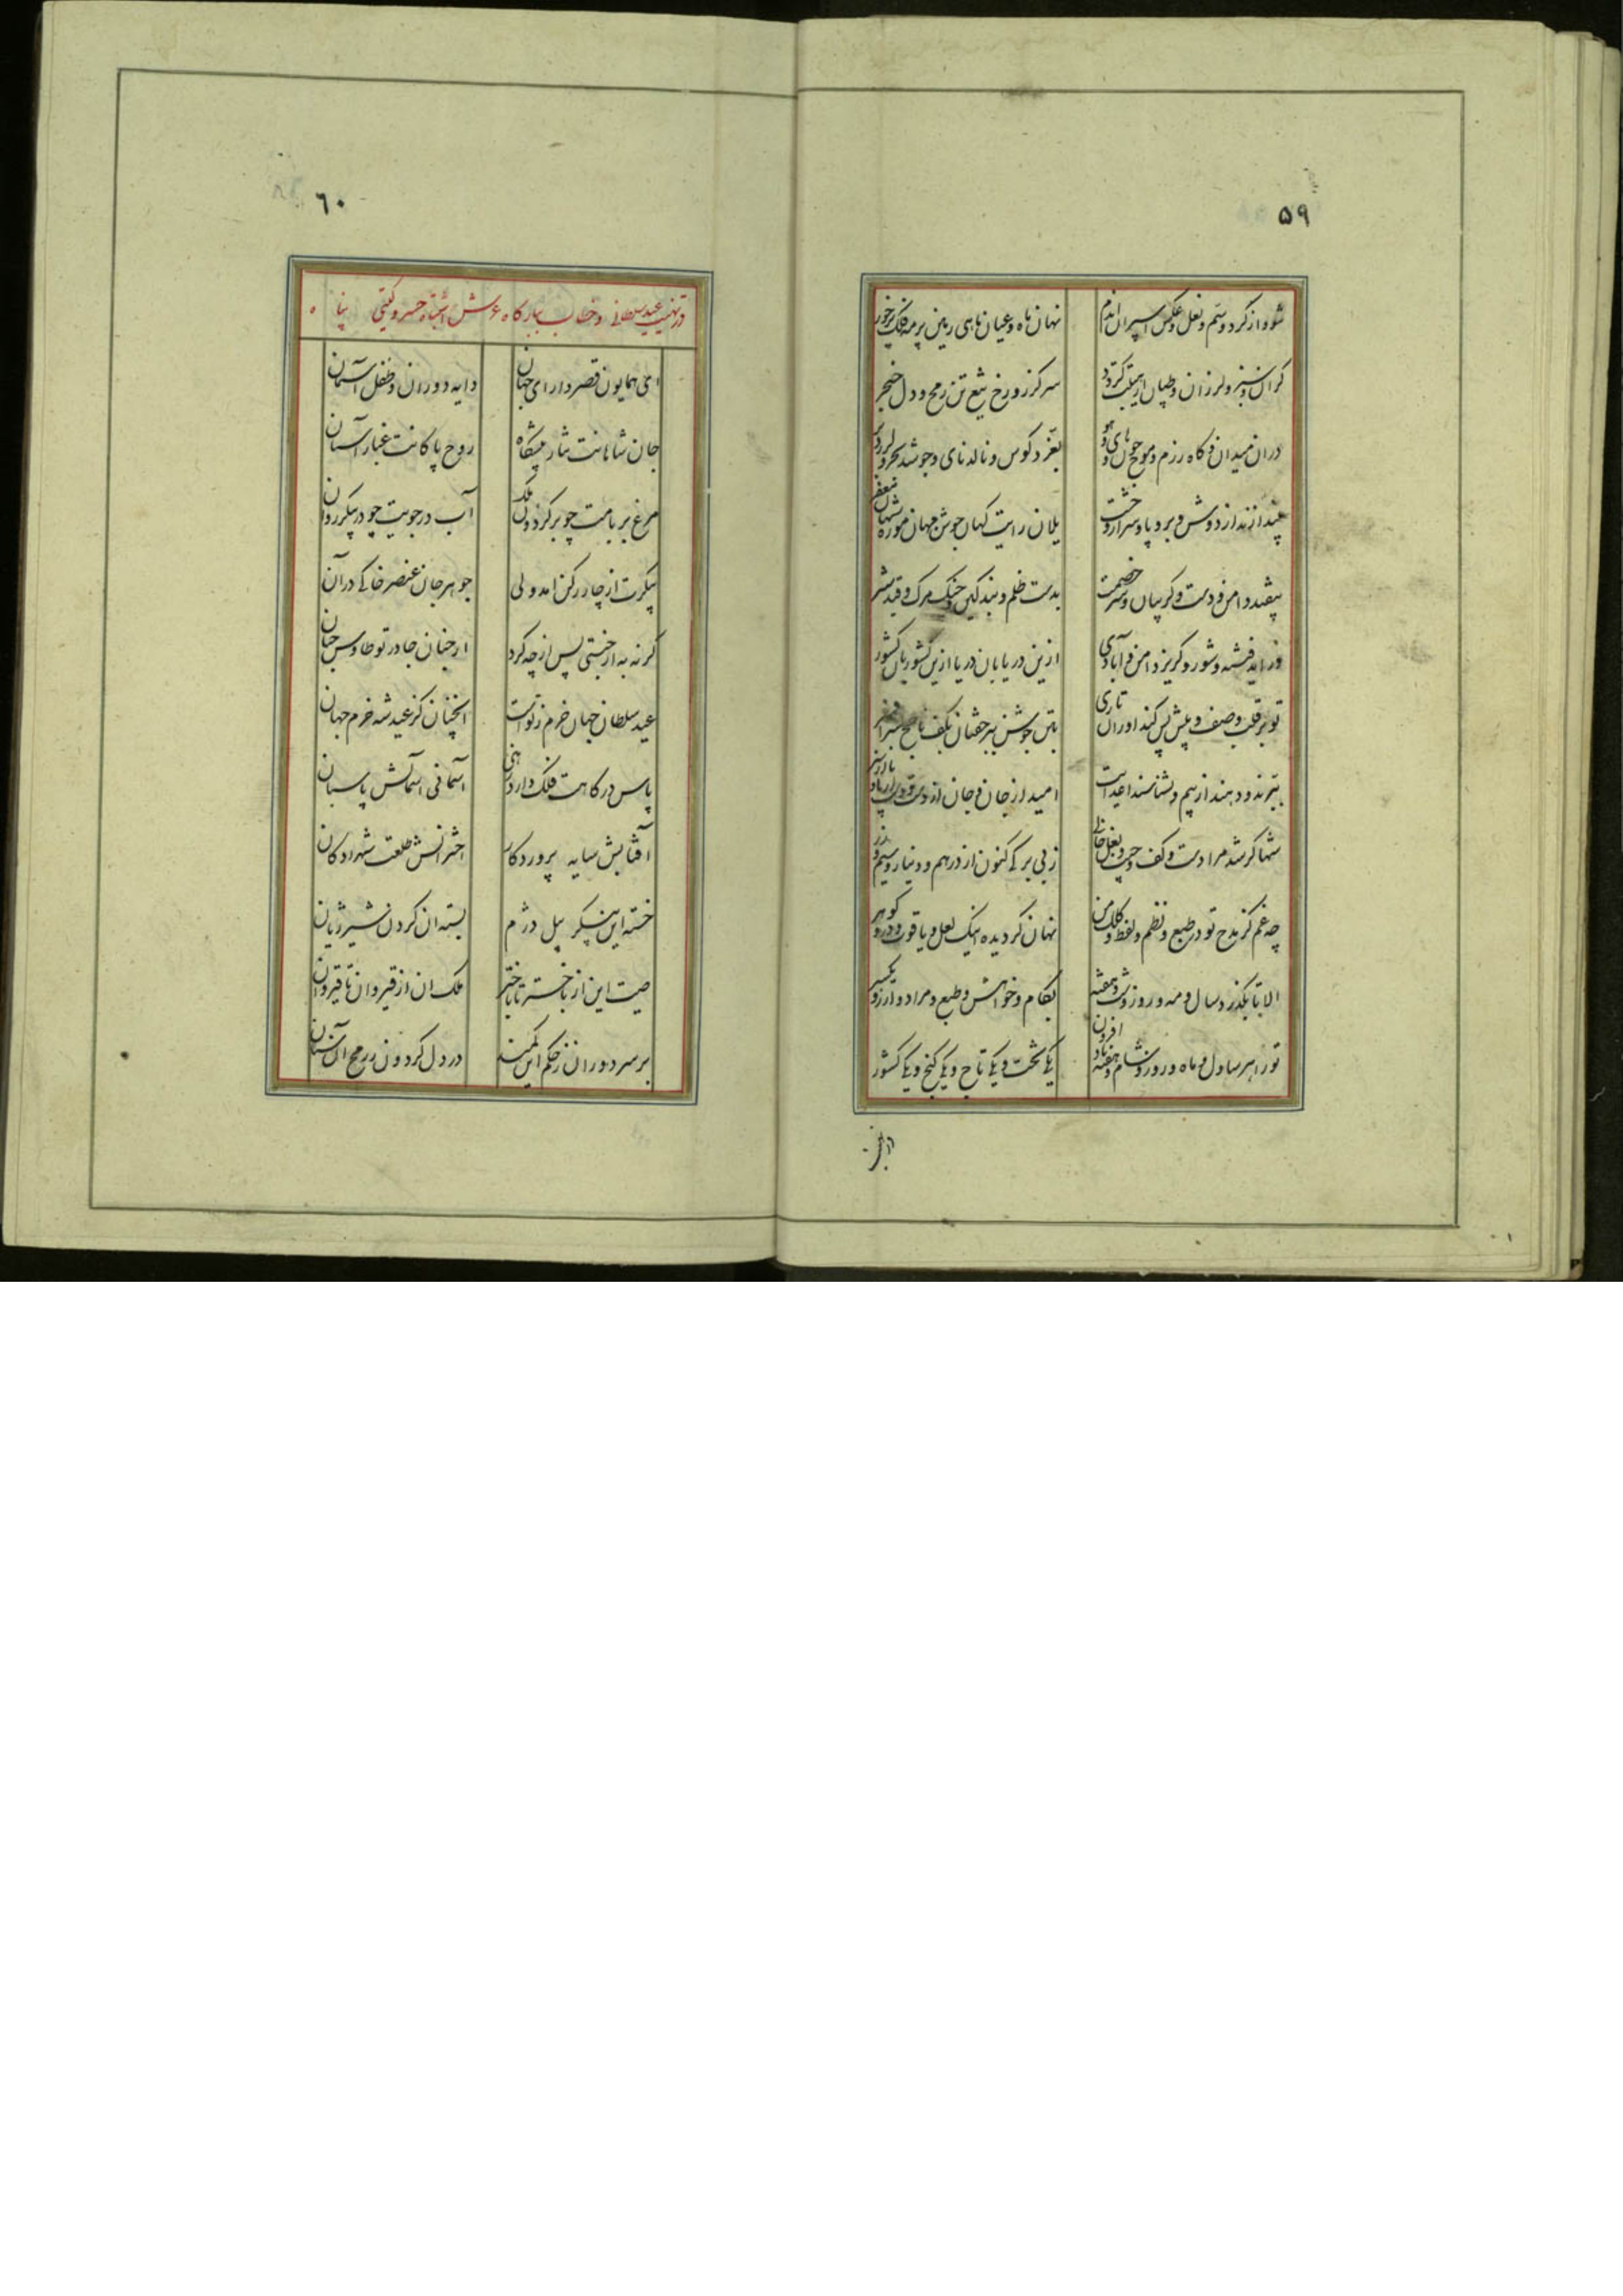 ۵۹
شود از گرد و سم و نعل و عکس اسپران اندم
نهان ماه و عیان ماهی زمین پر مه فلک پر خور
گران سنبر و لرزان و طپان از هیبتت گردد
سر گرز و رخ تیغ تن رمح و دل خنجر
دران میدان که گاه رزم و موج خون و های و هو
بغرد کوس و نالد نای و جوشد بحر و لرزد بر
بیندازند از دوش و بر و پا و سر
یلان رایت کهان جوشن مهان موزه شهان مغفر
بیفتد دامن و دست و گریبان و سر خصمت
بدست ظلم و بند کین و چنگ مرگ و قید شر
فزاید فتنه و شور و گریزد امن و آبادی
ازین دریا بان دریا ازین کشور بان کشور
تو بر قلب و صف و پیش و پس کند اوران تازی
بتن جوشن ببر خفتان بکف ناچخ بسر افسر
ببرند و دهند از بیم و نشناسند اعدایت
امید از جان و جان از دست و دست از پا و پا از سر
شها گر شد مرا دست و کف و جیب و بغل خالی
ز بی برگی کنون از درهم و دینار و سیم و زر
چه غم کز مدح تو در طبع و نظم و لفظ و کلک من
نهان گردیده اینک لعل و یاقوت و در و گوهر
الا تا بگذرد سال و مه و روز و شب و هفته
بکام و خواهش و طبع و مراد و آرزو یکسر
تو را هر سال و ماه و روز و شام و هفته افزون باد
یکی تخت و یکی تاج و یکی گنج و یکی کشور
۶۰
در تهنیت عید سلطانی و خطاب ببارگاه عرش اشتباه خسرو گیتی پناه
ای همایون قصر دارای جهان
دایه دوران و طفل آسمان
جان شاهانت نثار پیشگاه
روح پاکانت غبار آستان
مرغ بر بامت چو بر گردون ملک
آب در جویت چو در پیکر روان
پیکرت از چار رکن امد ولی
جوهر جان عنصر خاکی در آن
گر نه به از جنتی پس از چه کرد
از جنان جا در تو طاوس جنان
عید سلطان جهان خرم ز توست
انچنان کز عید شه خرم جهان
پاس درگاهت فلک دارد بلی
آسمانی آسمانش پاسبان
آفتابش سایه پروردگار
اخترانش طلعت شهزادگان
خسته این پیکر پیل دژم
بسته ان گردن شیر ژیان
صیت این از باختر تا باختر
ملک ان از قیروان تا قیروان
بر سر دوران ز حکم این کمند
در دل گردون ز رمح آن سنان